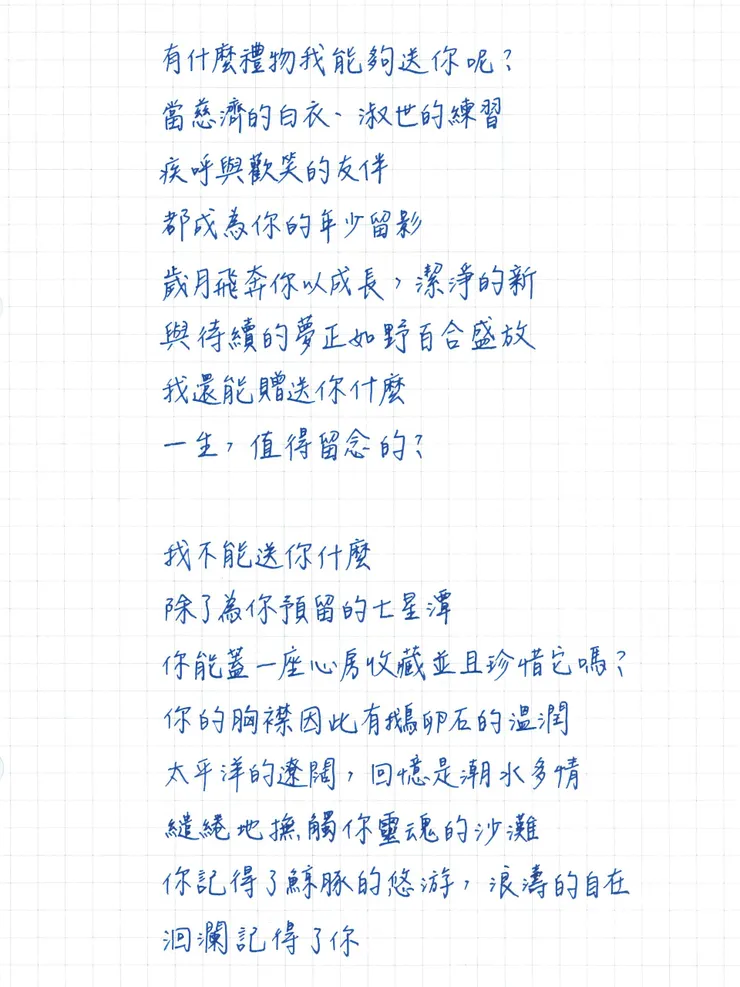 有什麼禮物我能夠送你呢？
當慈濟的白衣、淑世的練習
疾呼與歡笑的友伴
都成為你的年少留影
歲月飛奔你以成長，潔淨的新
與待續的夢正如野百合盛放
我還能贈送你什麼
一生，值得留念的？
我不能送你什麼
除了為你預留的七星潭
你能蓋一座心房收藏並且珍惜它嗎？
你的胸襟因此有鵝卵石的溫潤
太平洋的遼闊，回憶是潮水多情
繾綣地撫觸你靈魂的沙灘
你記得了鯨豚的悠游，浪濤的自在
洄瀾記得了你